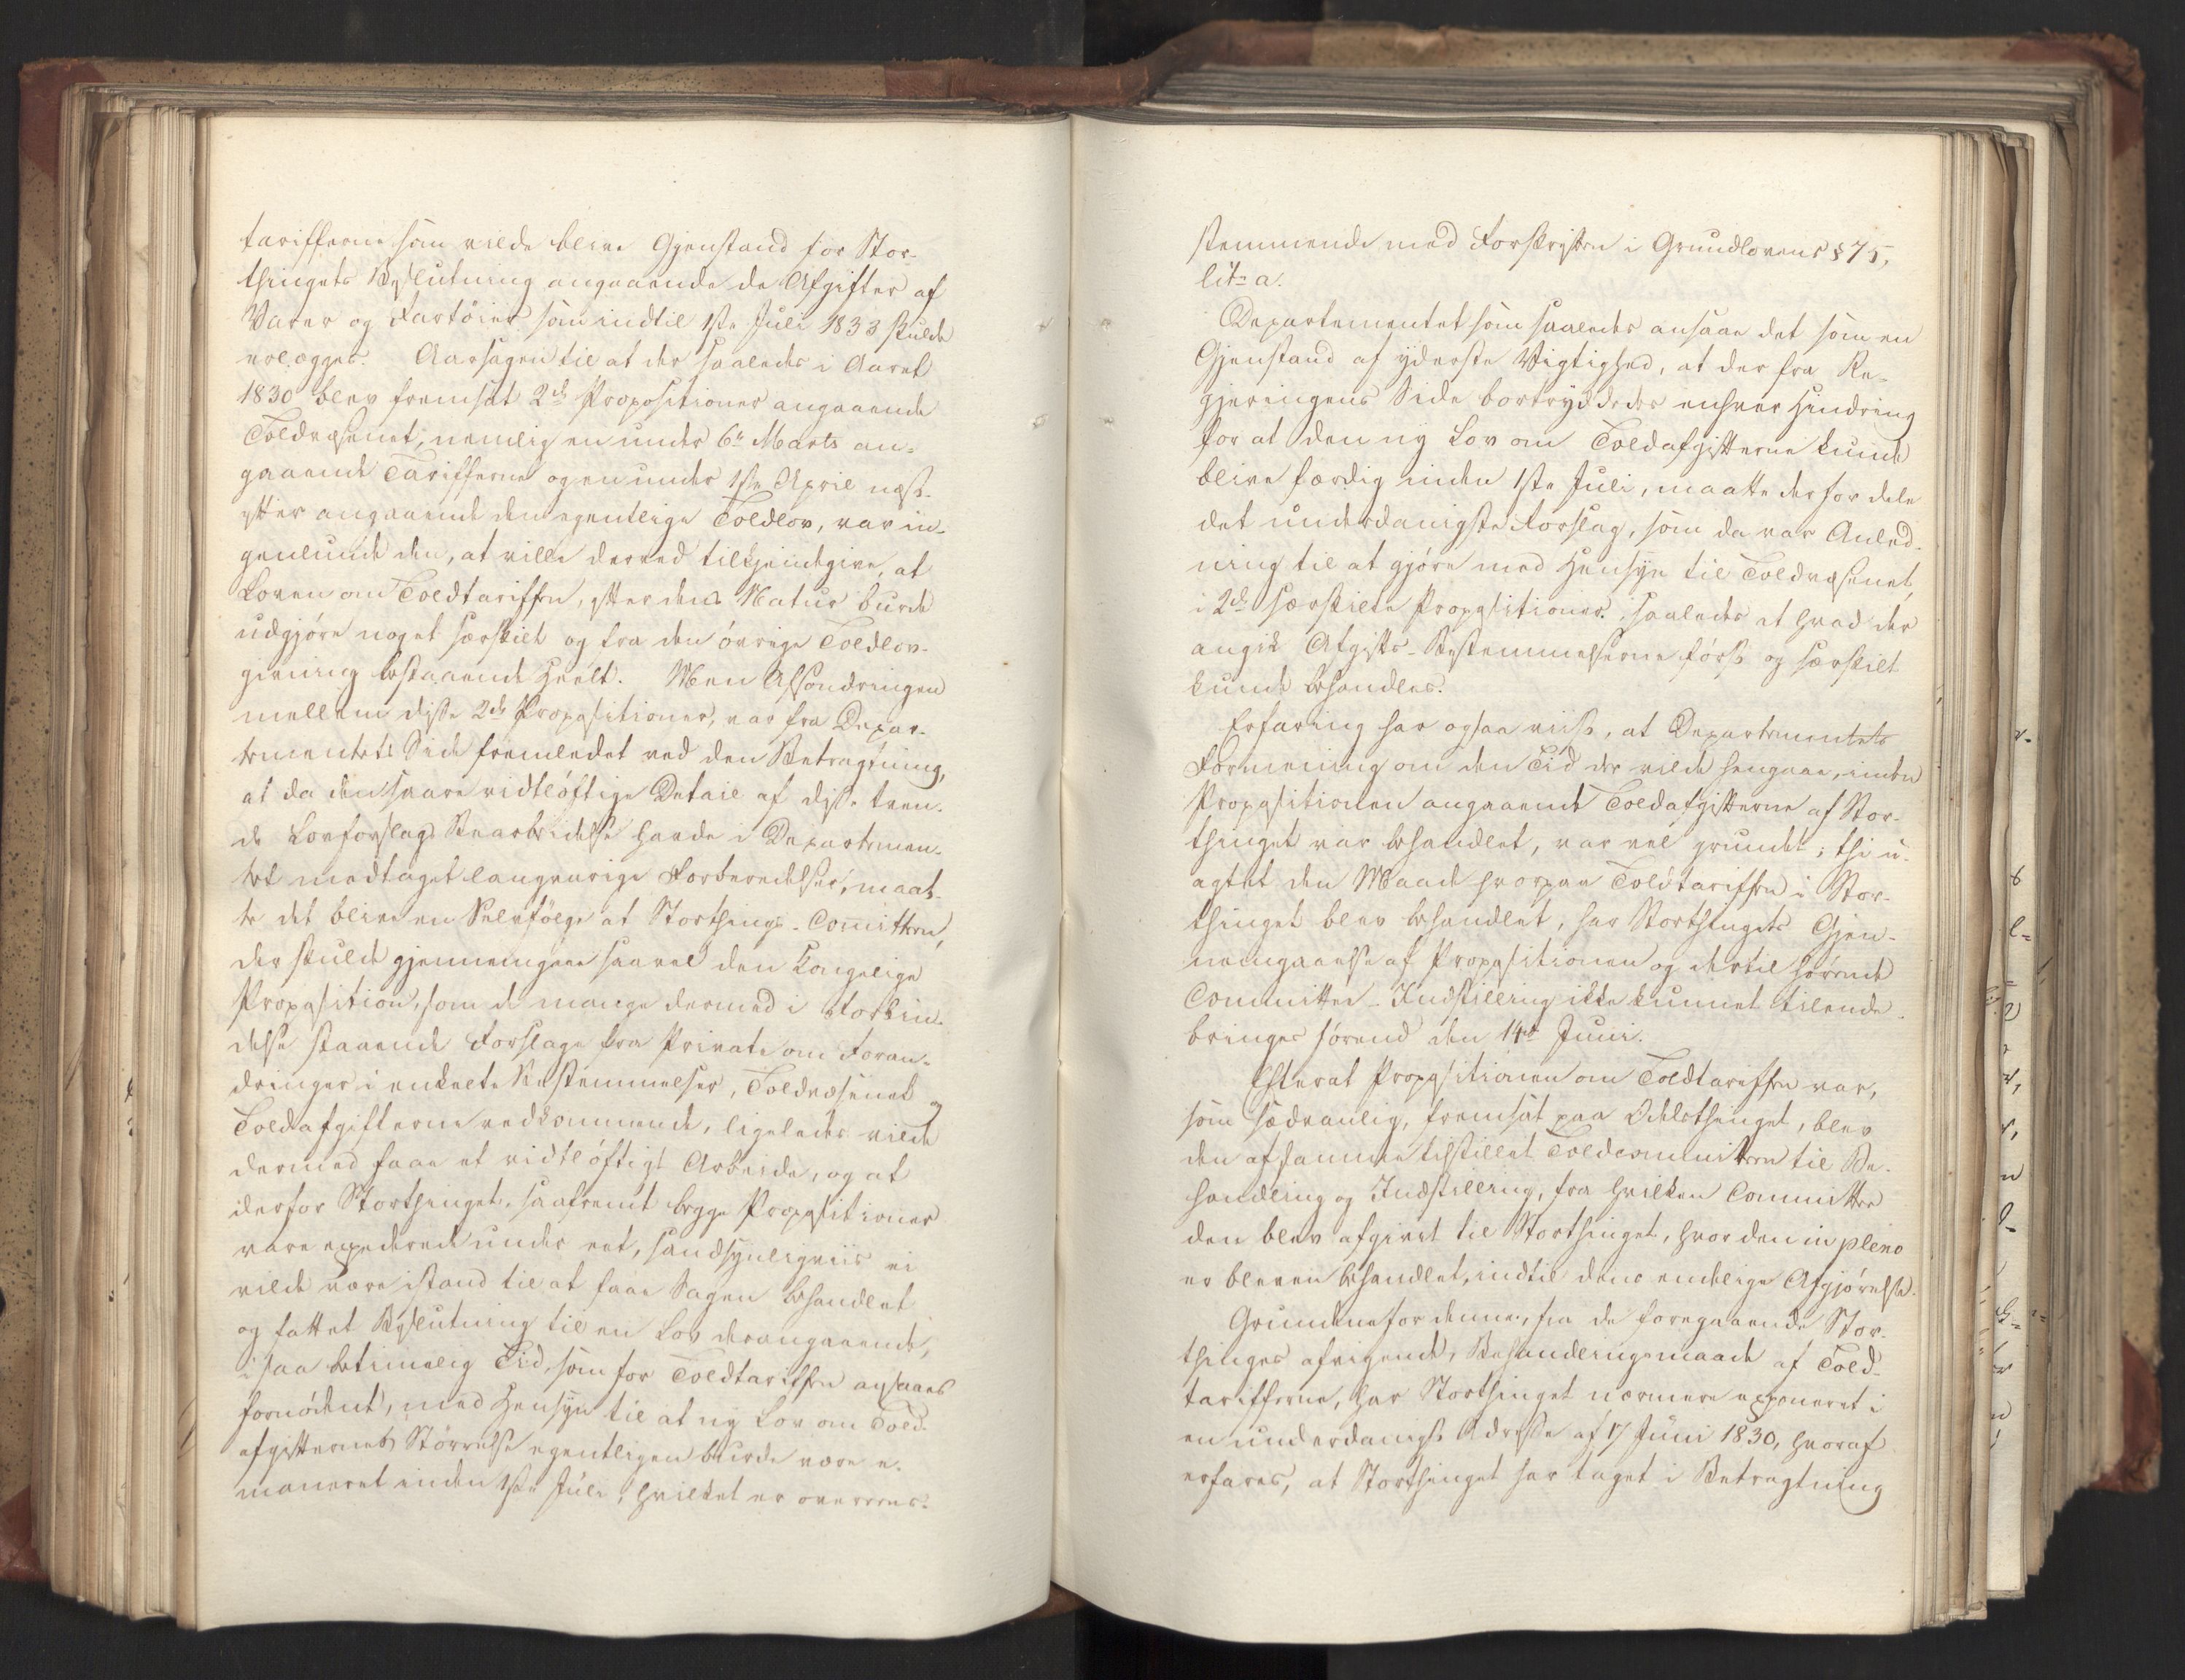 tarifferne som vilde blive Gjenstand for Stor-
thingets Beslutning angaaende de Afgifter af
Varer og Fartöier som indtil 1ste Juli 1833 skulde
erlægges. Aarsagen til at der saaledes i Aaret
1830 blev fremsat 2de Propositioner angaaende
Toldvæsenet, nemlig en under 6te Marts an-
gaaende Tarifferne og en under 1ste April næst-
efter angaaende den egentlige Toldlov, var in-
genlunde den, at ville derved tilkjendegive, at
Loven om Toldtariffen, efter dens Natur burde
udgjöre noget særskilt og fra den övrige Toldlov-
givning bestaaende Heelt. Men Afsondringen
mellem disse 2de Propositioner, var fra Depar-
tementets Side fremledet ved den Betragtning,
at da den svare vidtlöftige Detail af disse tven-
de Lovforslags Bearbeidelse havde i Departemen-
tet medtaget langvarige Forberedelser, maat-
te det blive en Selvfölge at Storthings-Comitteen,
der skulde gjennemgaae saavel den Kongelige
Proposition, som de mange dermed i Forbin-
delse staaende Forslage fra Private om Foran-
dringer i enkelte Bestemmelser, Toldvæsenet og
Toldafgifterne vedkommende, ligeledes vilde
dermed faae et vidtlöftigt Arbeide, og at
derfor Storthinget, saafremt begge Propositioner
vare expederede under eet, sandsynligviis ei
vilde være istand til at faae Sagen behandlet
og fattet Beslutning til en Lov derangaaende,
i saa betimelig Tid, som for Toldtariffen ansaaes
fornödent, med Hensyn til at ny Lov om Told-
afgifternes Störrelse egentligen burde være e-
maneret inden 1ste Juli, hvilket er overeens-
stemmende med Forskriften i Grundlovens § 75,
litr. a.
Departementet som saaledes ansaae det som en
Gjenstand af yderste Vigtighed, at der fra Re-
gjeringens Side bortryddedes enhver Hindring
for at den ny Lov om Toldafgifterne kunde
blive færdig inden 1ste Juli, maatte derfor dele
det underdanigste Forslag, som da var Anled-
ning til at gjöre med Hensyn til Toldvæsenet,
i 2de særskilte Propositioner, saaledes at hvad der
angik Afgifts-Bestemmelserne först og særskilt
kunde behandles.
Erfaring har ogsaa viist, at Departementets
Formening om den Tid der vilde hengaae, inden
Propositionen angaaende Toldafgifterne af Stor-
thinget var behandlet, var vel grundet; thi u-
agtet den Maade hvorpaa Toldtariffen i Stor-
thinget blev behandlet, har Storthingets Gjen-
nemgaaelse af Propositionen og dertil hörende
Committee-Indstilling ikke kunnet tilende-
bringes förend den 14de Juni.
Efterat Propositionen om Toldtariffen var,
som sædvanlig, fremsat paa Odelsthinget, blev
den af samme tilstillet Toldcommitteen til Be-
handling og Indstilling, fra hvilken Committee
den blev afgivet til Storthinget, hvor den in pleno
er bleven behandlet, indtil dens endelige Afgjörelse.
Grundene for denne, fra de foregaaende Stor-
thinges afvigende, Behandlingsmaade af Told-
tarifferne, har Storthinget nærmere exponeret i
en underdanigst Adresse af 17 Juni 1830, hvoraf
erfares, at Storthinget har taget i Betragtning